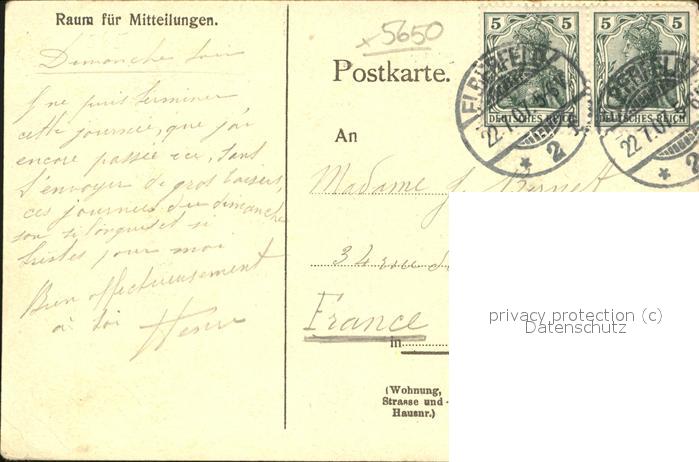 Raum für Mitteilungen.
Dimanche soir
Je ne puis terminer
cette journée, que j'ai
encore passée ici, sans
t'envoyer de gros baisers,
ces journées du dimanche
son si longues et si
tristes pour moi
Bien affectueusement
à toi
x5650
Postkarte.
An
Madame J.
34 rue
France
in
(Wohnung,
Strasse und
Hausnr.)
5 5
DEUTSCHES REICH
ELBERFELD
22.7.07. 5-6N
* 2
5 5
DEUTSCHES REICH
ELBERFELD
22.7.07.
* 2
privacy protection (c)
Datenschutz